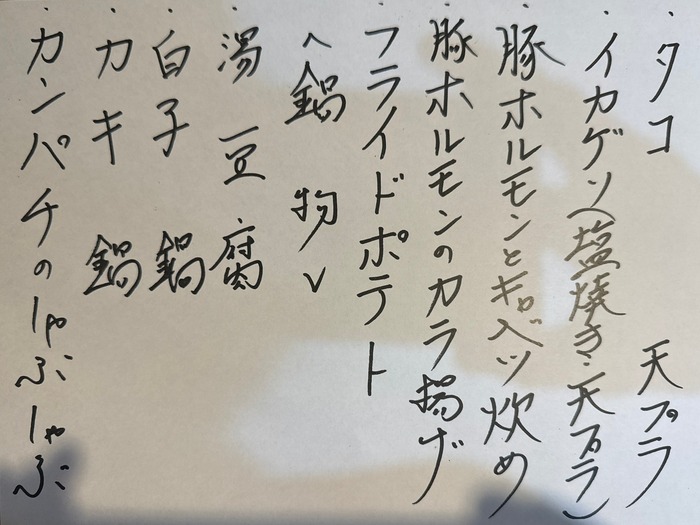 ・タコ 天プラ
・イカゲソ(塩焼き・天プラ)
・豚ホルモンとキャベツ炊め
・豚ホルモンのカラ揚げ
・フライドポテト
<鍋物>
・湯豆腐
・白子鍋
・カキ鍋
・カンパチのしゃぶしゃぶ